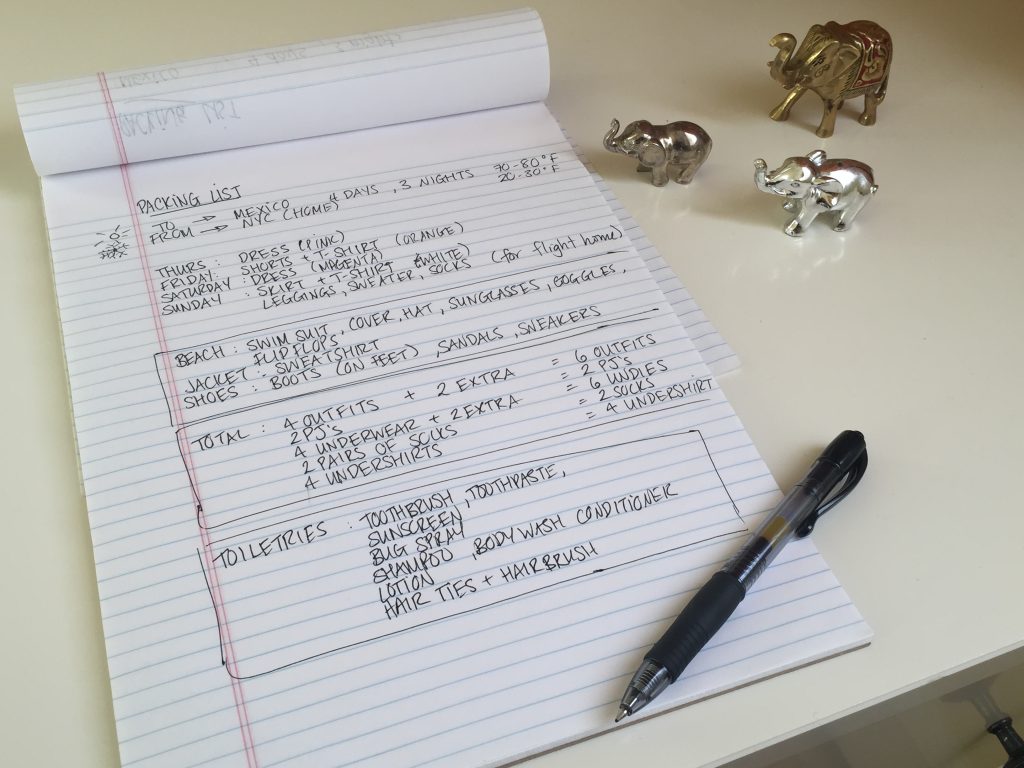 PACKING LIST
TO → MEXICO 4 DAYS, 3 NIGHTS 70-80°F
FROM → NYC (HOME) 20-30°F
THURS: DRESS (PINK)
FRIDAY: SHORTS + T-SHIRT (ORANGE)
SATURDAY: DRESS (MAGENTA)
SUNDAY: SKIRT + T-SHIRT (WHITE)
LEGGINGS, SWEATER, SOCKS (for flight home)
BEACH: SWIMSUIT, COVER, HAT, SUNGLASSES, GOGGLES,
FLIP FLOPS
JACKET: SWEATSHIRT
SHOES: BOOTS (ON FEET), SANDALS, SNEAKERS
TOTAL: 4 OUTFITS + 2 EXTRA = 6 OUTFITS
2 PJ'S = 2 PJ'S
4 UNDERWEAR + 2 EXTRA = 6 UNDIES
2 PAIRS OF SOCKS = 2 SOCKS
4 UNDERSHIRTS = 4 UNDERSHIRT
TOILETRIES: TOOTHBRUSH, TOOTHPASTE,
SUNSCREEN
BUG SPRAY
SHAMPOO, BODYWASH CONDITIONER
LOTION
HAIR TIES + HAIRBRUSH